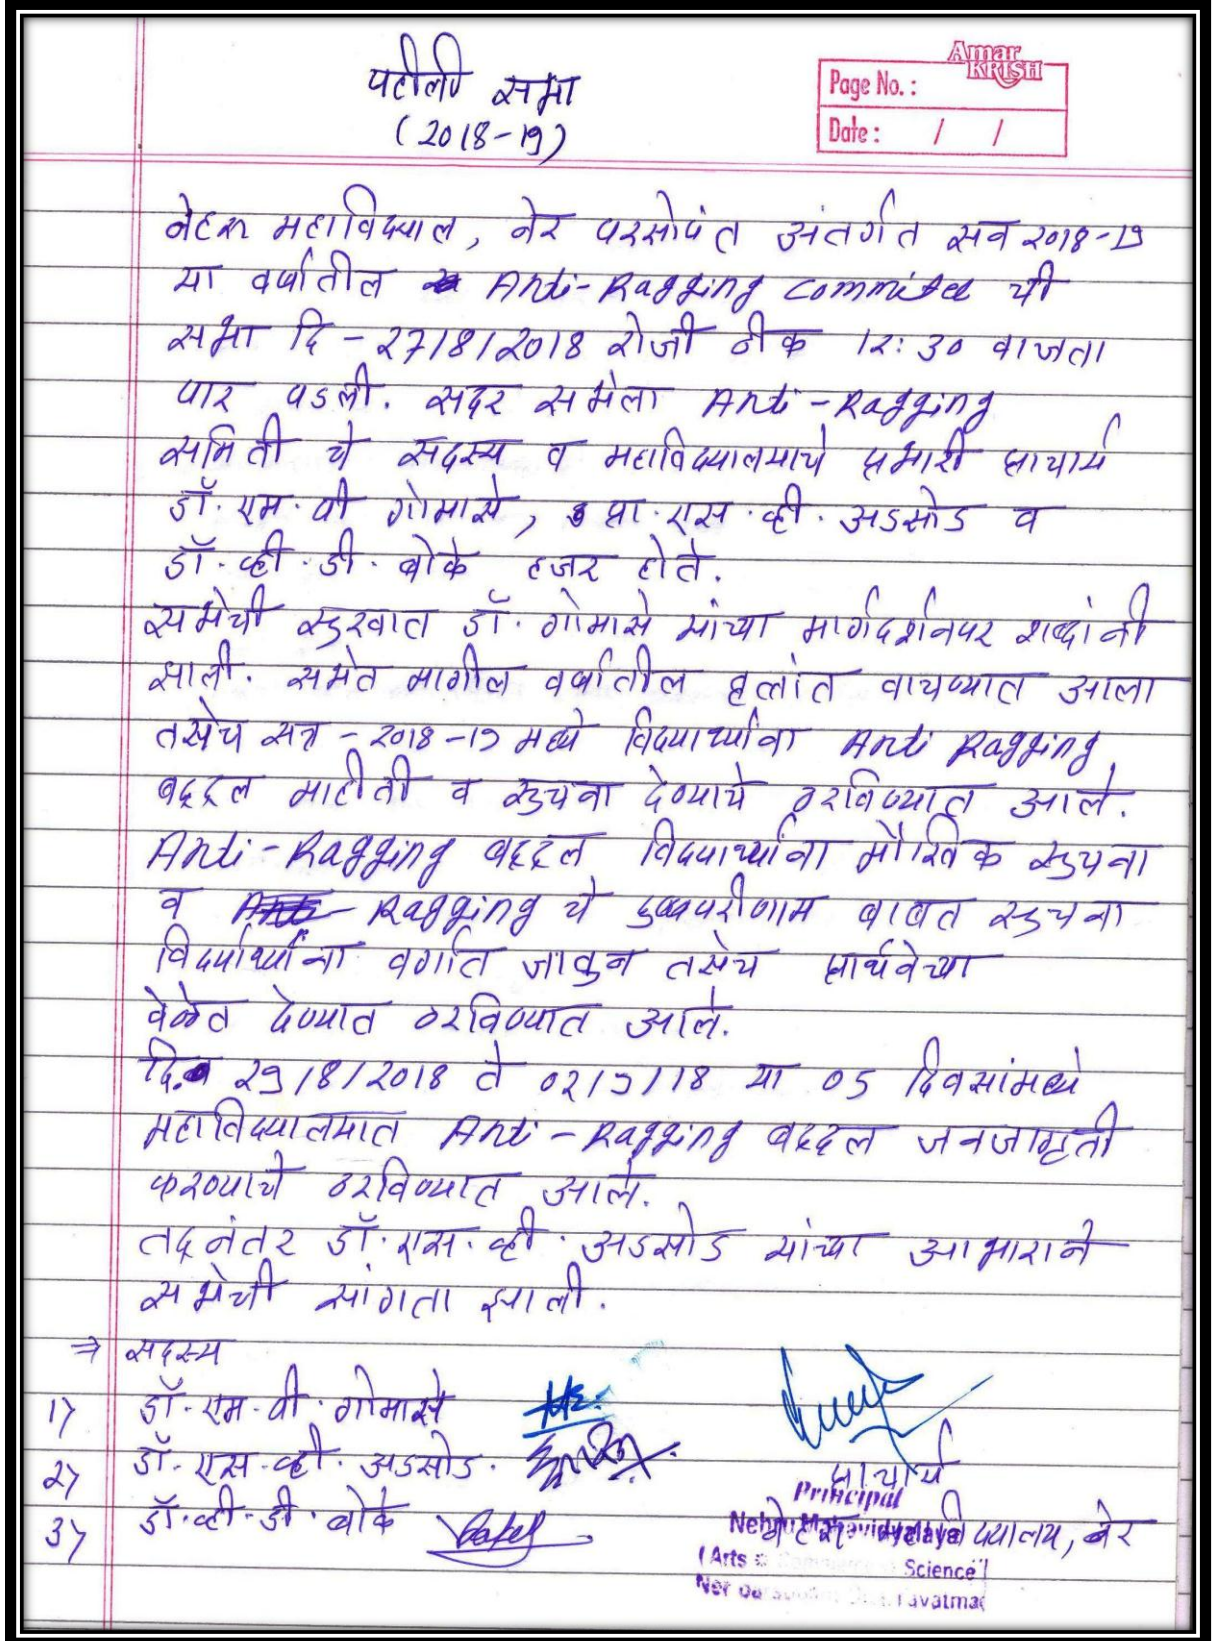 पहीली सभा
(2018-19)
Amar
KRISH
Page No. :
Date : / /
नेहरू महाविद्याल, नेर परसोपंत अंतर्गत सन २०१8-19
या वर्षातील Anti-Ragging Committee ची
सभा दि - २7/8/2018 रोजी ठीक 12:30 वाजता
पार पडली. सदर सभेला Anti-Ragging
समिती चे सदस्य व महाविद्यालयाचे प्रभारी प्राचार्य
डॉ. एम. बी गोमासे, प्रा. एस. व्ही. अडसोड व
डॉ. व्ही. डी. बोके हजर होते.
सभेची सुरवात डॉ. गोमासे यांच्या मार्गदर्शनपर शब्दांनी
झाली. सभेत मागील वर्षातील वृत्तांत वाचण्यात आला
तसेच सत्र - २०18-19 मध्ये विद्यार्थ्यांना Anti Ragging
बद्दल माहीती व सुचना देण्याचे ठरविण्यात आले.
Anti-Ragging बद्दल विद्यार्थ्यांना मौखिक सुचना
व Ragging चे दुष्परीणाम बाबत सुचना
विद्यार्थ्यांना वर्गात जावुन तसेच प्रार्थनेच्या
वेळेत देण्यात ठरविण्यात आले.
दि. 29/8/2018 ते 02/9/18 या 05 दिवसांमध्ये
महाविद्यालयात Anti-Ragging बद्दल जनजागृती
करण्याचे ठरविण्यात आले.
तद्नंतर डॉ. एस. व्ही. अडसोड यांच्या आभाराने
सभेची सांगता झाली.
⇒ सदस्य
1) डॉ. एम. बी. गोमासे
2) डॉ. एस. व्ही. अडसोड.
3) डॉ. व्ही. डी. बोके
प्राचार्य
Principal
नेहरू महाविद्यालय, नेर
Nehru Mahavidyalaya
(Arts Commerce Science)
Ner Yavatmal